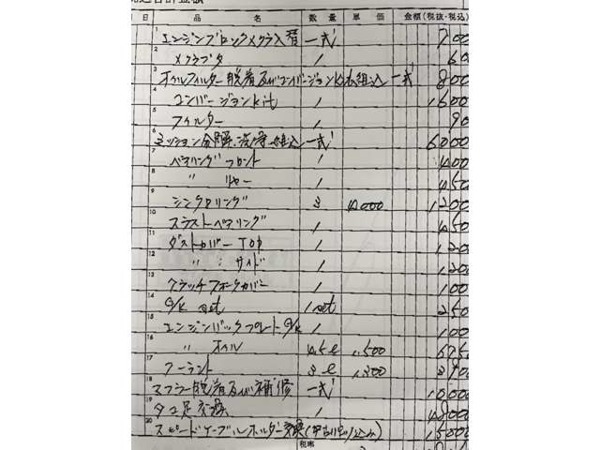 日 品 名 数量 単価 金額(税抜・税込)
1 エンジンブロックメクラ入替 一式 700
2 メクラブタ 1 60
3 オイルフィルター脱着及びコンバージョンkit組込 一式 800
4 コンバージョンkit 1 1600
5 フィルター 1 90
6 ミッション分解、洗浄、組込 一式 6000
7 ベアリングフロント 1 400
8 〃 リヤー 1 450
9 シンクロリング 3 4000 1200
10 スラストベアリング 1 450
11 ダストカバー TOP 1 120
12 〃 : サイド 1 120
13 クラッチフォークカバー 1 100
14 G/k set 1 set 250
15 エンジンバックプレート G/k 1 100
16 〃 オイル 4.5ℓ 1,500 675
17 クーラント 3ℓ 1,300 390
18 マフラー脱着及び補修 一式 10000
19 タコ足交換 1 48000
20 スピードケーブルホルダー交換 15000
税率